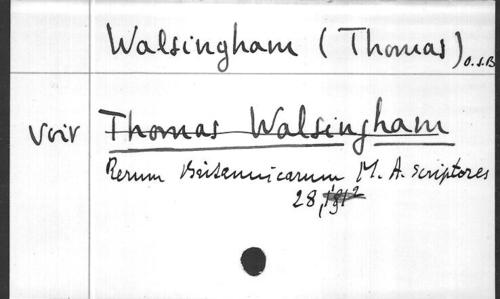 Walsingham (Thomas) O.S.B
Voir Thomas Walsingham
Rerum Britannicarum M. A. Scriptores
28,